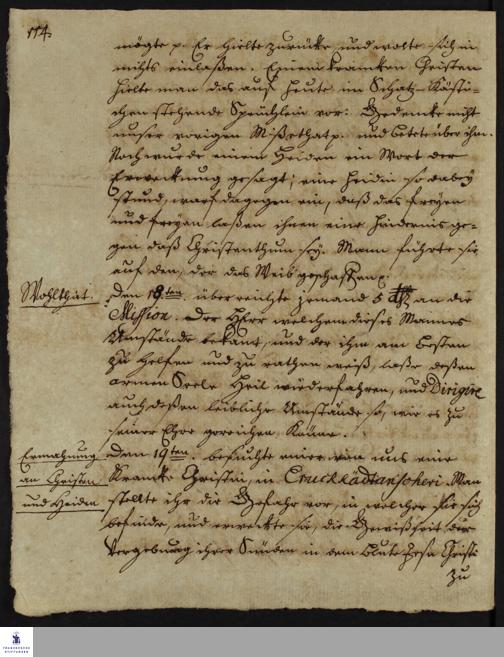 114.
mögte p. Er hielte zurücke und wolte sich in
nichts einlaßen. Einem krancken Christen
hielte man das auf heute im Schatz-Käst-
chen stehende Sprüchlein vor: Gedencke nicht
unser vorigen Mißethat p. und betete über ihn.
Noch wurde einem Heiden ein Wort der
Erweckung gesagt; eine Heidin so dabey
stund, warf dagegen ein, daß das freyen
und freyen laßen ihnen eine Hinderniß ge-
gen das Christenthum sey. Mann führte sie
auf den, der das Weib geschaffen p.
Wohlthat.
Den 18ten. überreichte jemand 5 an die
Mission. Der HErr welchem dieses Mannes
Umstände bekant, und der ihm am besten
zu helfen und zu rathen weiß, laße deßen
armen Seele Heil wiederfahren, und Dirigire
auch deßen leibliche Umstände so, wie es zu
seiner Ehre gereichen könne.
Ermahnung
an Christen
und Heiden.
Den 19ten. besuchte einer von uns eine
krancke Christin, in Cruckkadtanscheri. Man
stellte ihr die Gefahr vor, in welcher sie sich
befinde, und erweckte sie, die Gewißheit der
Vergebung ihrer Sünden in dem Blute Jesu Christi
zu
FRANCKESCHE
STIFTUNGEN